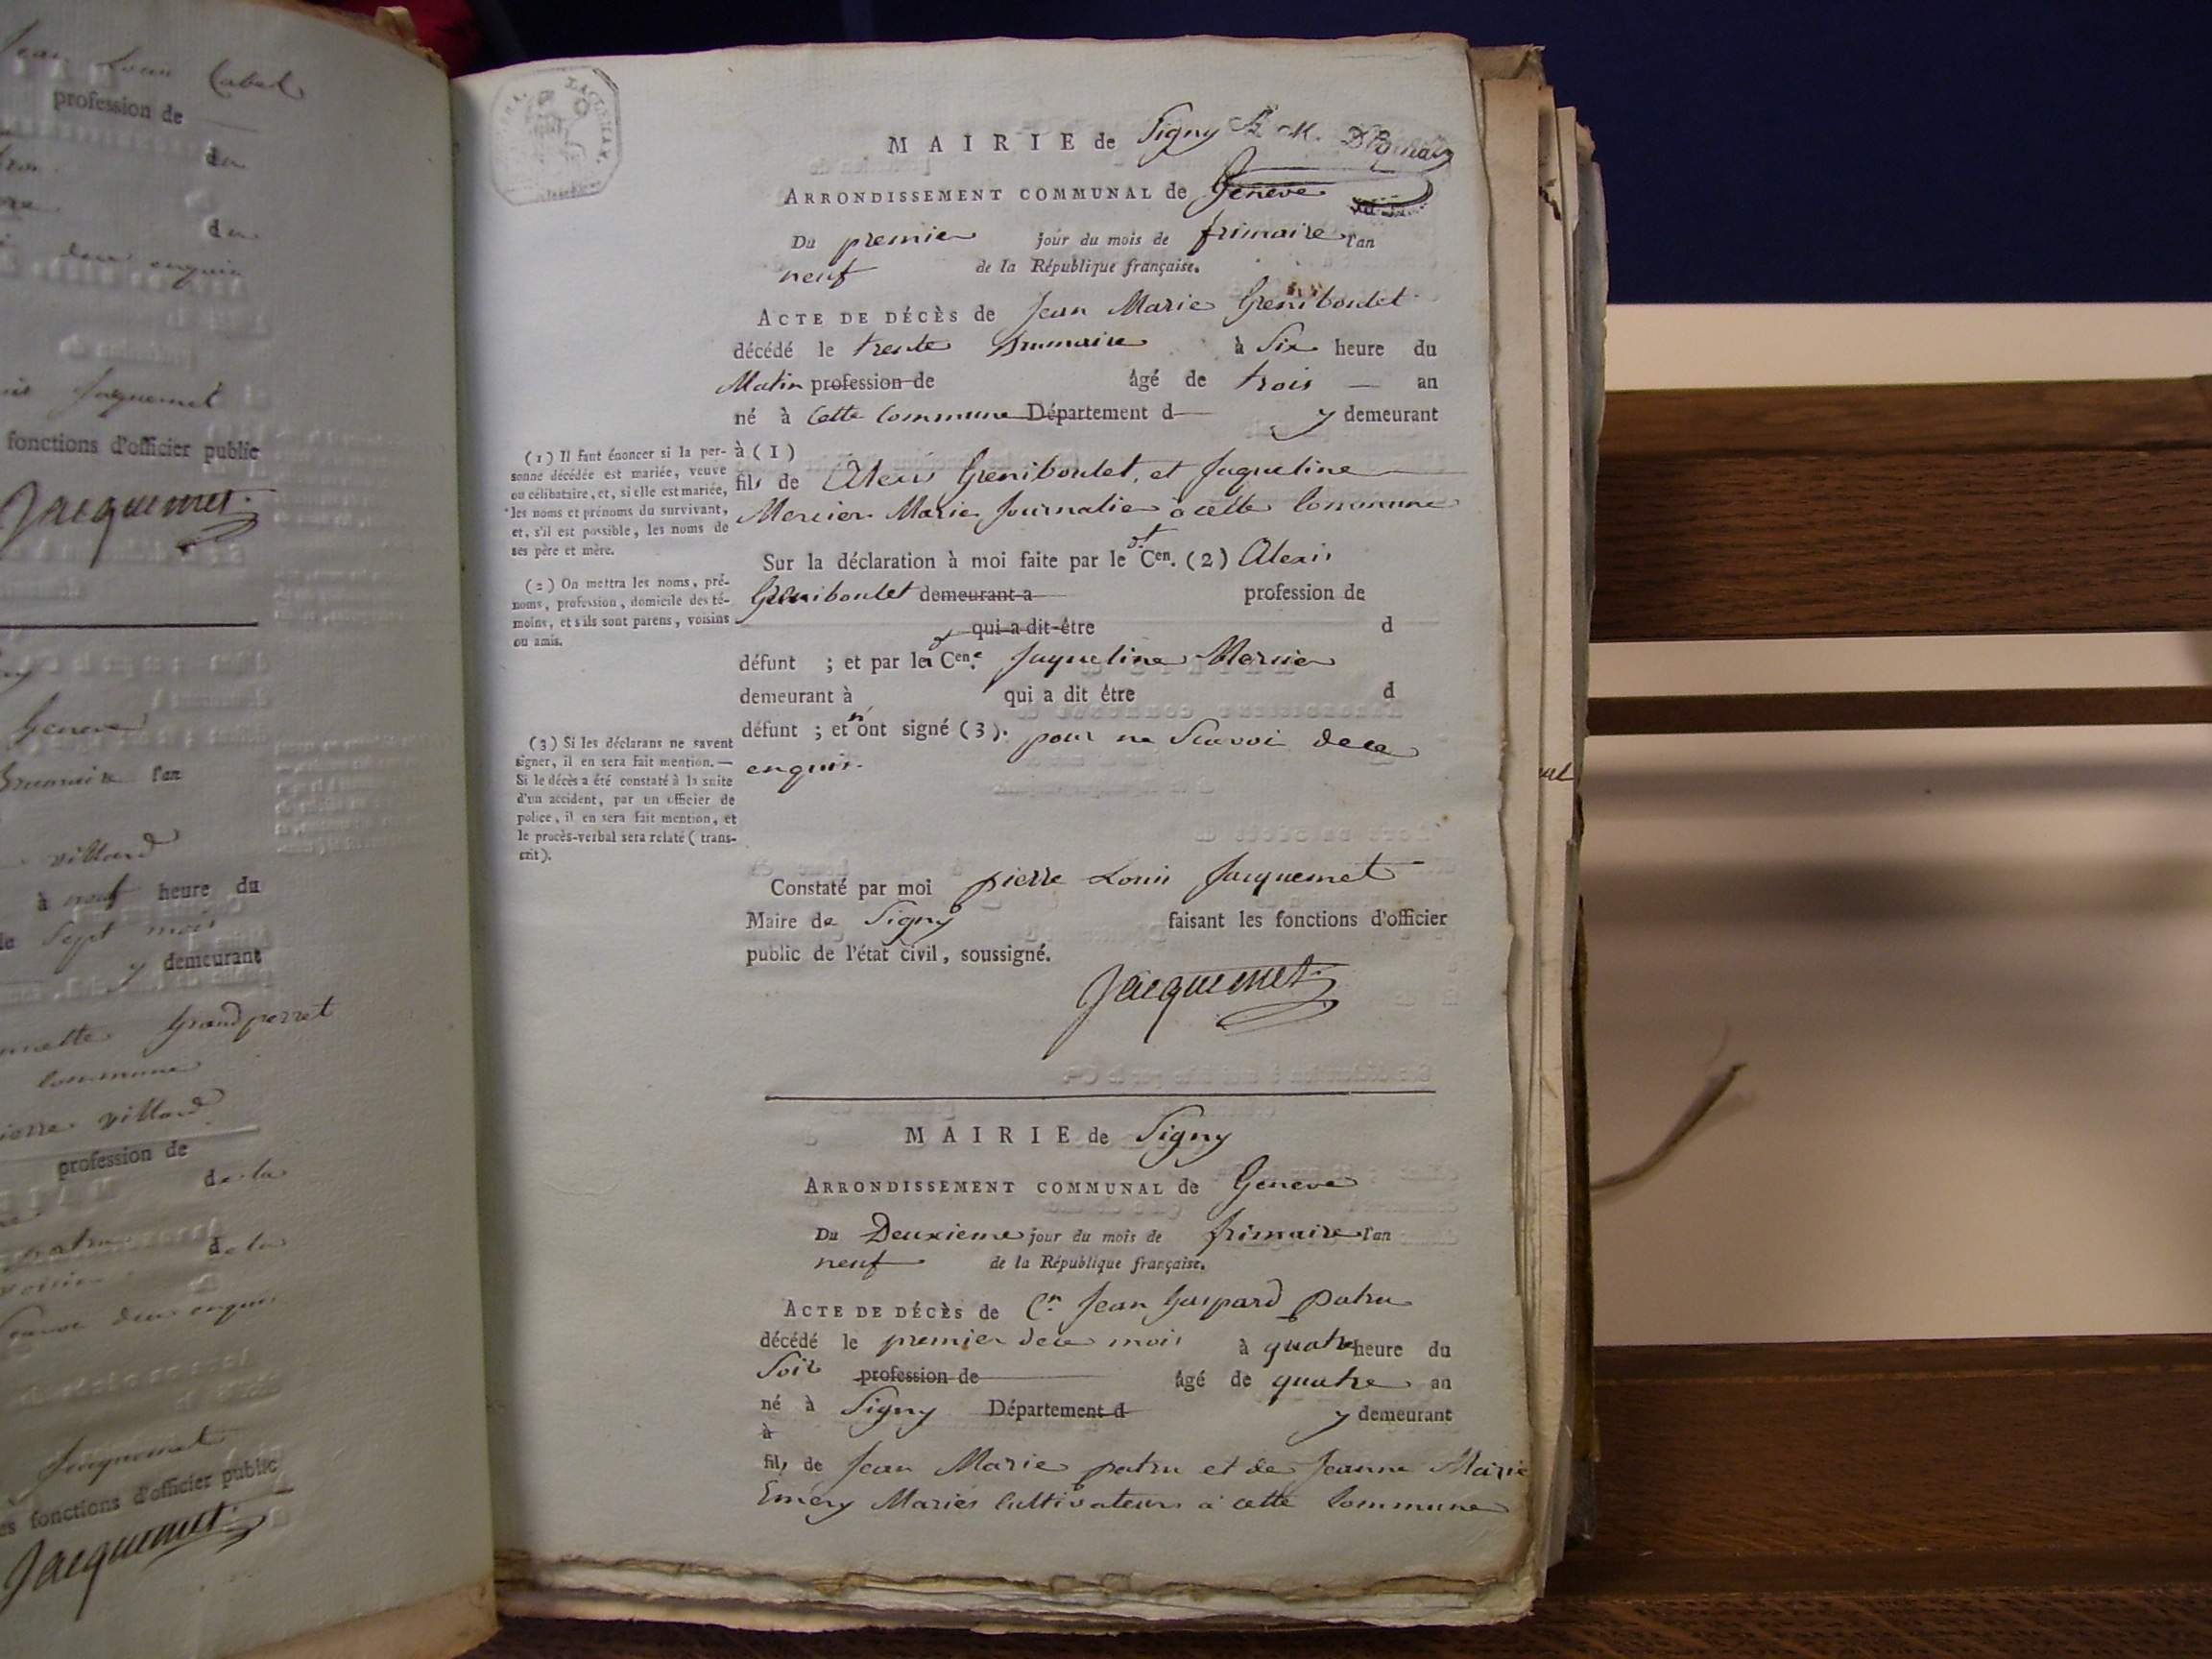 Jean Louis Cabal
profession de
du
du
deux enquis
Jaquemet
fonctions d'officier public
Jacquemet.
Geneve
Brumaire l'an
villard
à neuf heure du
Sept mois
y demeurant
Grandperret
commune
pierre villard
profession de
de la
de la
enquis
Jaquemet
fonctions d'officier public
Jacquemet.
MAIRIE de Signy
ARRONDISSEMENT COMMUNAL de Geneve
Du premier jour du mois de frimaire l'an
neuf de la République française.
ACTE DE DÉCÈS de Jean Marie Greniboulet
décédé le trente Brumaire à Six heure du
Matin profession de âgé de trois — an
né à Cette Commune Département d y demeurant
à (1)
fils de Alexis Greniboulet, et Jaqueline
Mercier Marie Journalier à cette Commune
(1) Il faut énoncer si la per-
sonne décédée est mariée, veuve
ou célibataire, et, si elle est mariée,
les noms et prénoms du survivant,
et, s'il est possible, les noms de
ses père et mère.
Sur la déclaration à moi faite par le dt Cen. (2) Alexis
Greniboulet demeurant a profession de
qui a dit être d
défunt ; et par la Cene. Jaqueline Mercier
demeurant à qui a dit être d
défunt ; et n'ont signé (3). pour ne Scavoi dece
enquis.
(2) On mettra les noms, pré-
noms, profession, domicile des té-
moins, et s'ils sont parens, voisins
ou amis.
(3) Si les déclarans ne savent
signer, il en sera fait mention. —
Si le décès a été constaté à la suite
d'un accident, par un officier de
police, il en sera fait mention, et
le procès-verbal sera relaté (trans-
crit).
Constaté par moi pierre Louis Jacquemet
Maire de Signy faisant les fonctions d'officier
public de l'état civil, soussigné.
Jacquemet.
MAIRIE de Signy
ARRONDISSEMENT COMMUNAL de Geneve
Du Deuxieme jour du mois de frimaire l'an
neuf de la République française.
ACTE DE DÉCÈS de Cn. Jean Gaspard patru
décédé le premier dece mois à quatre heure du
Soir profession de âgé de quatre an
né à Signy Département d y demeurant
à
fils de Jean Marie patru et de Jeanne Marie
Emery Mariés Cultivateurs à cette Commune